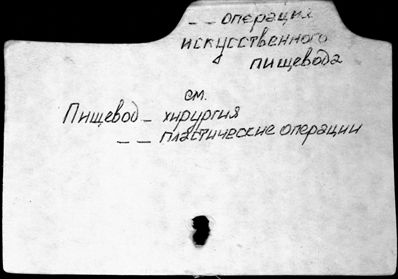 — — операция
искусственного
пищевода
см.
Пищевод — хирургия
— — пластические операции